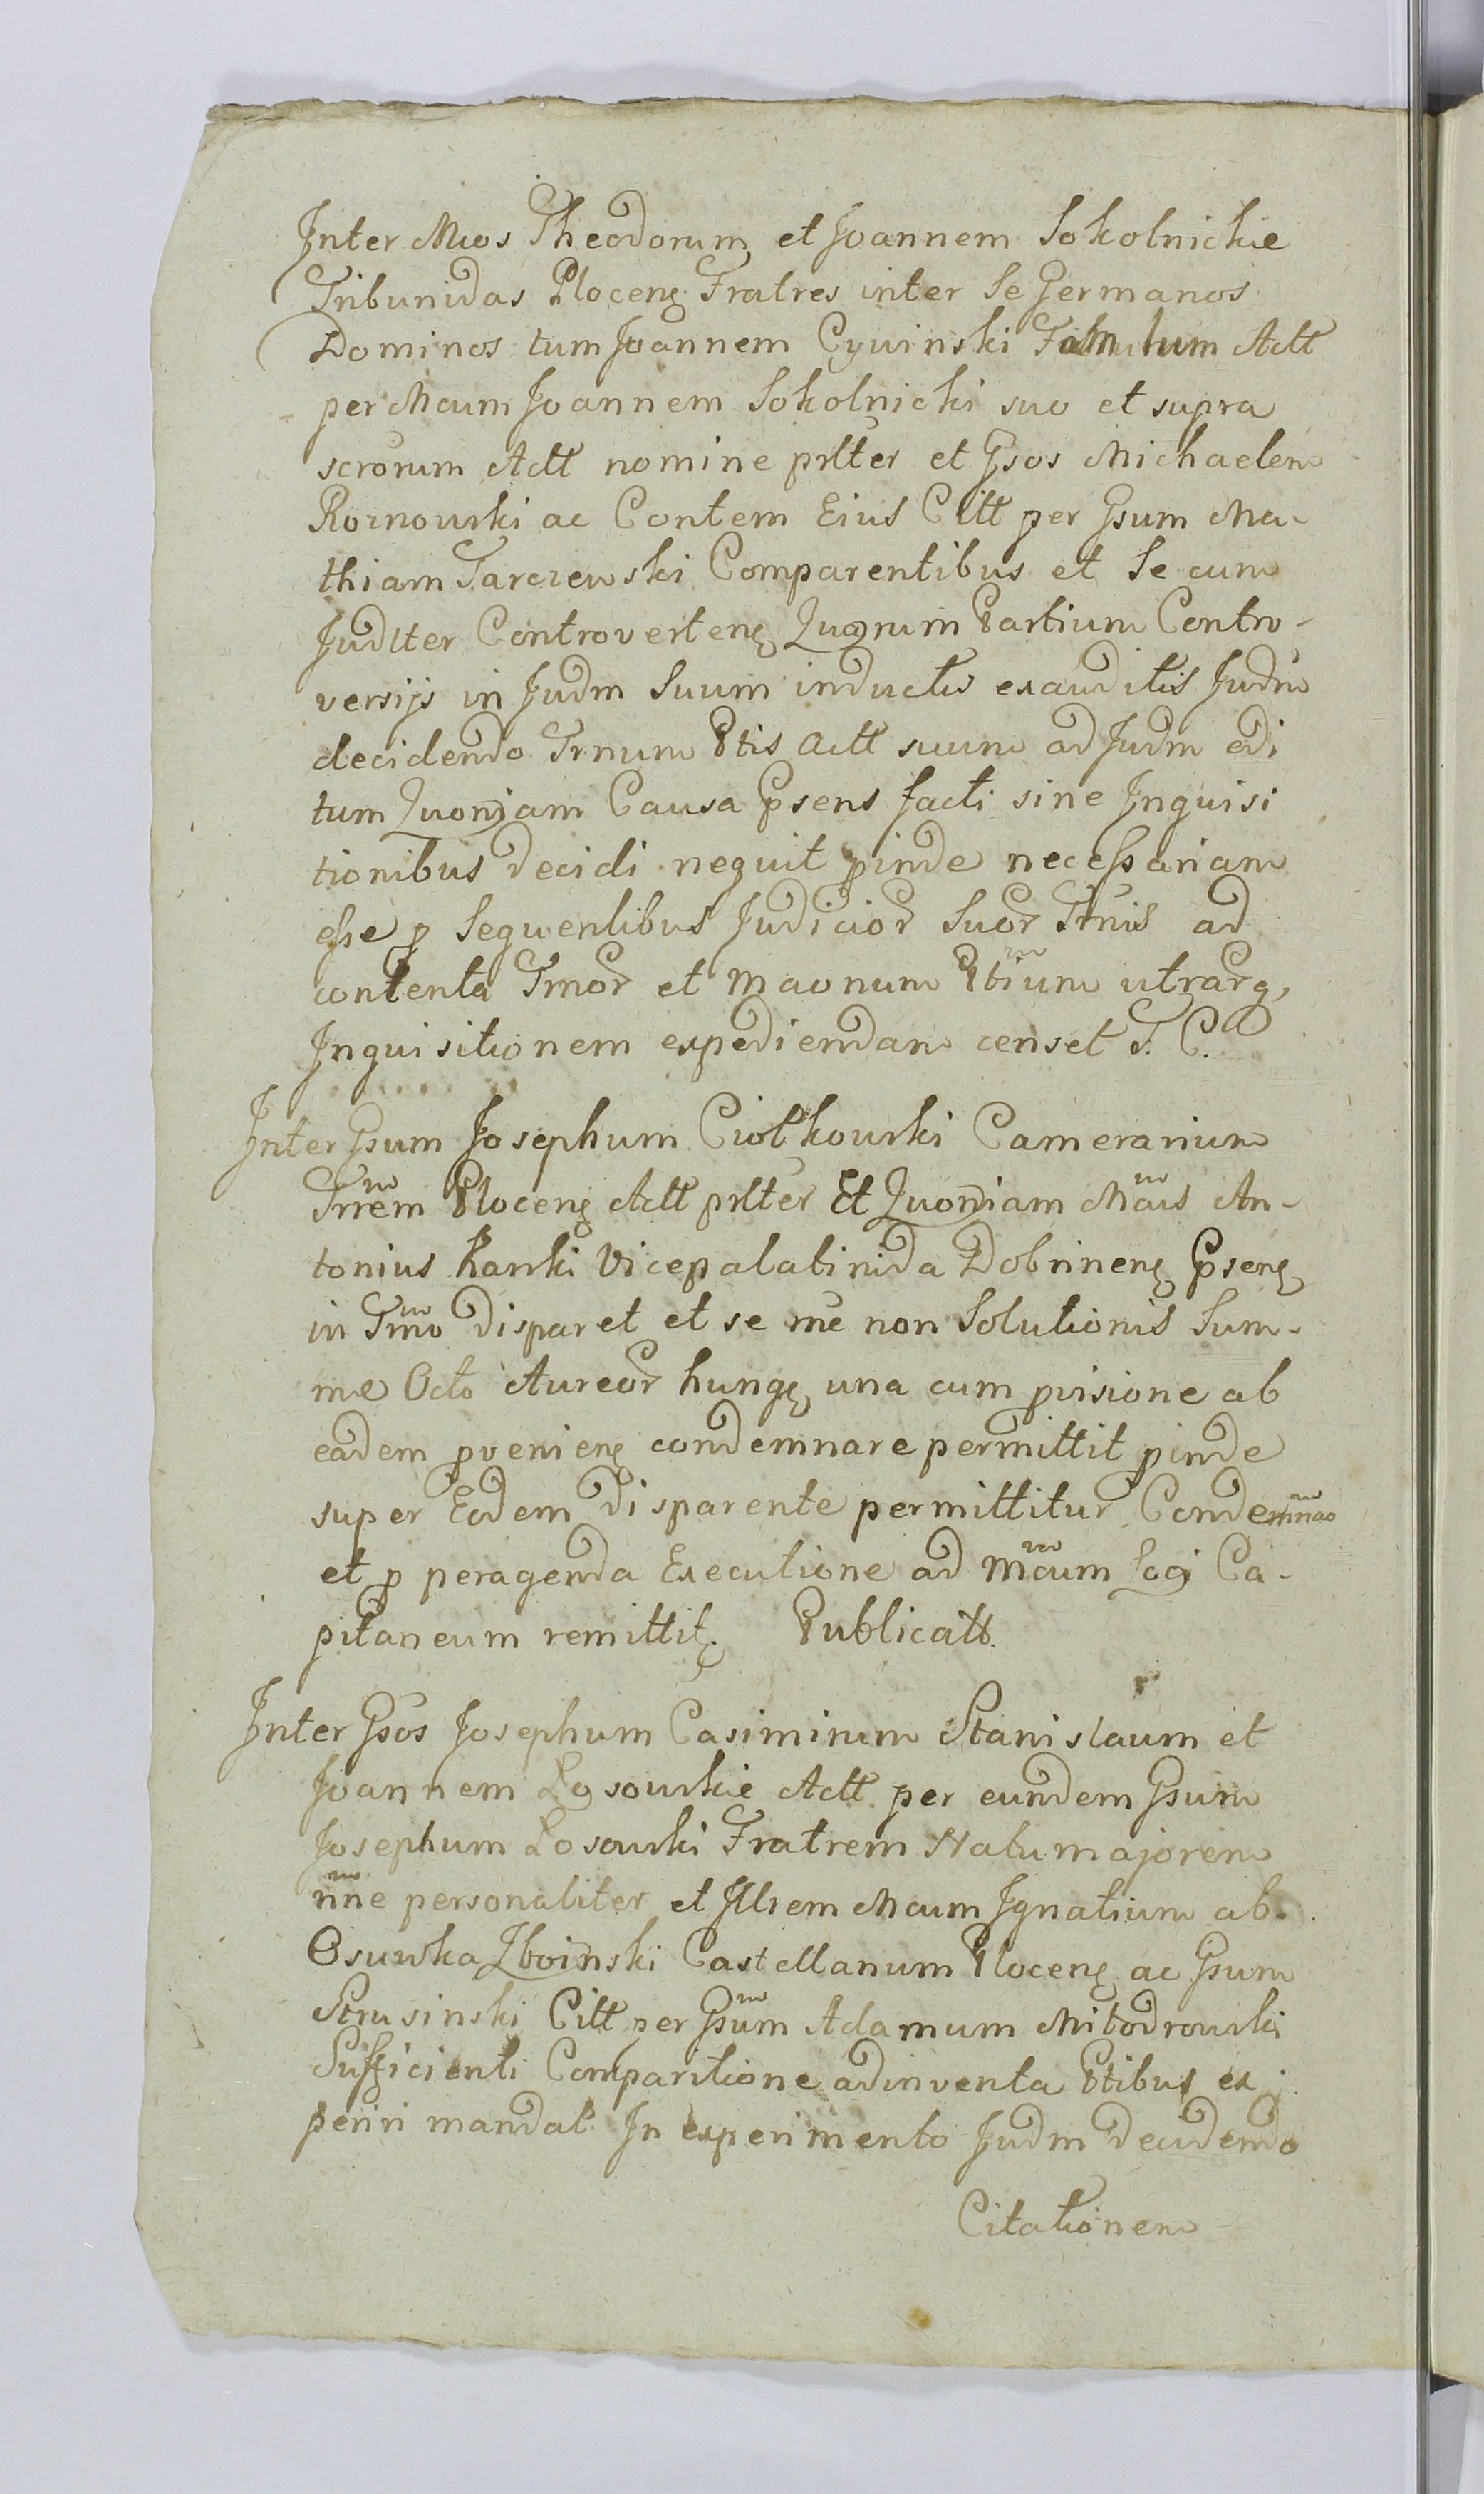 Inter Mcos Theodorum et Joannem Sokolnickie
Tribunidas Ploceng Fratres inter Se Germanos
Dominos tum Joannem Cywinski Famulum Actt
per Mcum Joannem Sokolnicki suo et supra
scrorum Actt nomine prlter et Gsos Michaelem
Roznowski ac Contem Eius Citt per Gsum Ma-
thiam Tarczewski Comparentibus et Se cum
Judlter Controverteng Quorum Partium Contro-
versijs in Judm Suum inductis exauditis Judm
decidendo Trnum Ptis Actt suum ad Judm edi
tum Quoniam Causa Psens facti sine Inquisi
tionibus decidi nequit pinde necessariam
esse p Sequentibus Judicior Suor Trnis ad
contenta Tmor et Maonum Ptium utrarq,
Inquisitionem expediendam censet T. C.
Inter Gsum Josephum Ciołkowski Camerarium
Trrem Ploceng Actt prlter Et Quoniam Mcus An-
tonius Karski Vicepalatinida Dobrineng Pseng
in Tmo disparet et se me non Solutionis Sum-
me Octo Aureor hungę una cum pvisione ab
eadem pvenieng condemnare permittit pinde
super Eodem disparente permittitur Condemnao
et p peragenda Executione ad Mcum Loci Ca-
pitaneum remittit. Publicatt.
Inter Gsos Josephum Casimirum Stanislaum et
Joannem Łosowskie Actt per eundem Gsum
Josephum Łosowski Fratrem Natu majorem
nne personaliter et Illrem Mcum Ignatium ab
Osuwka Zboinski Castellanum Ploceng ac Gsum
Strusinski Citt per Gsum Adamum Mitodrowski
Sufficienti Comparitione adinventa Ptibus ex
periri mandat In experimento Judm decidendo
Citationem